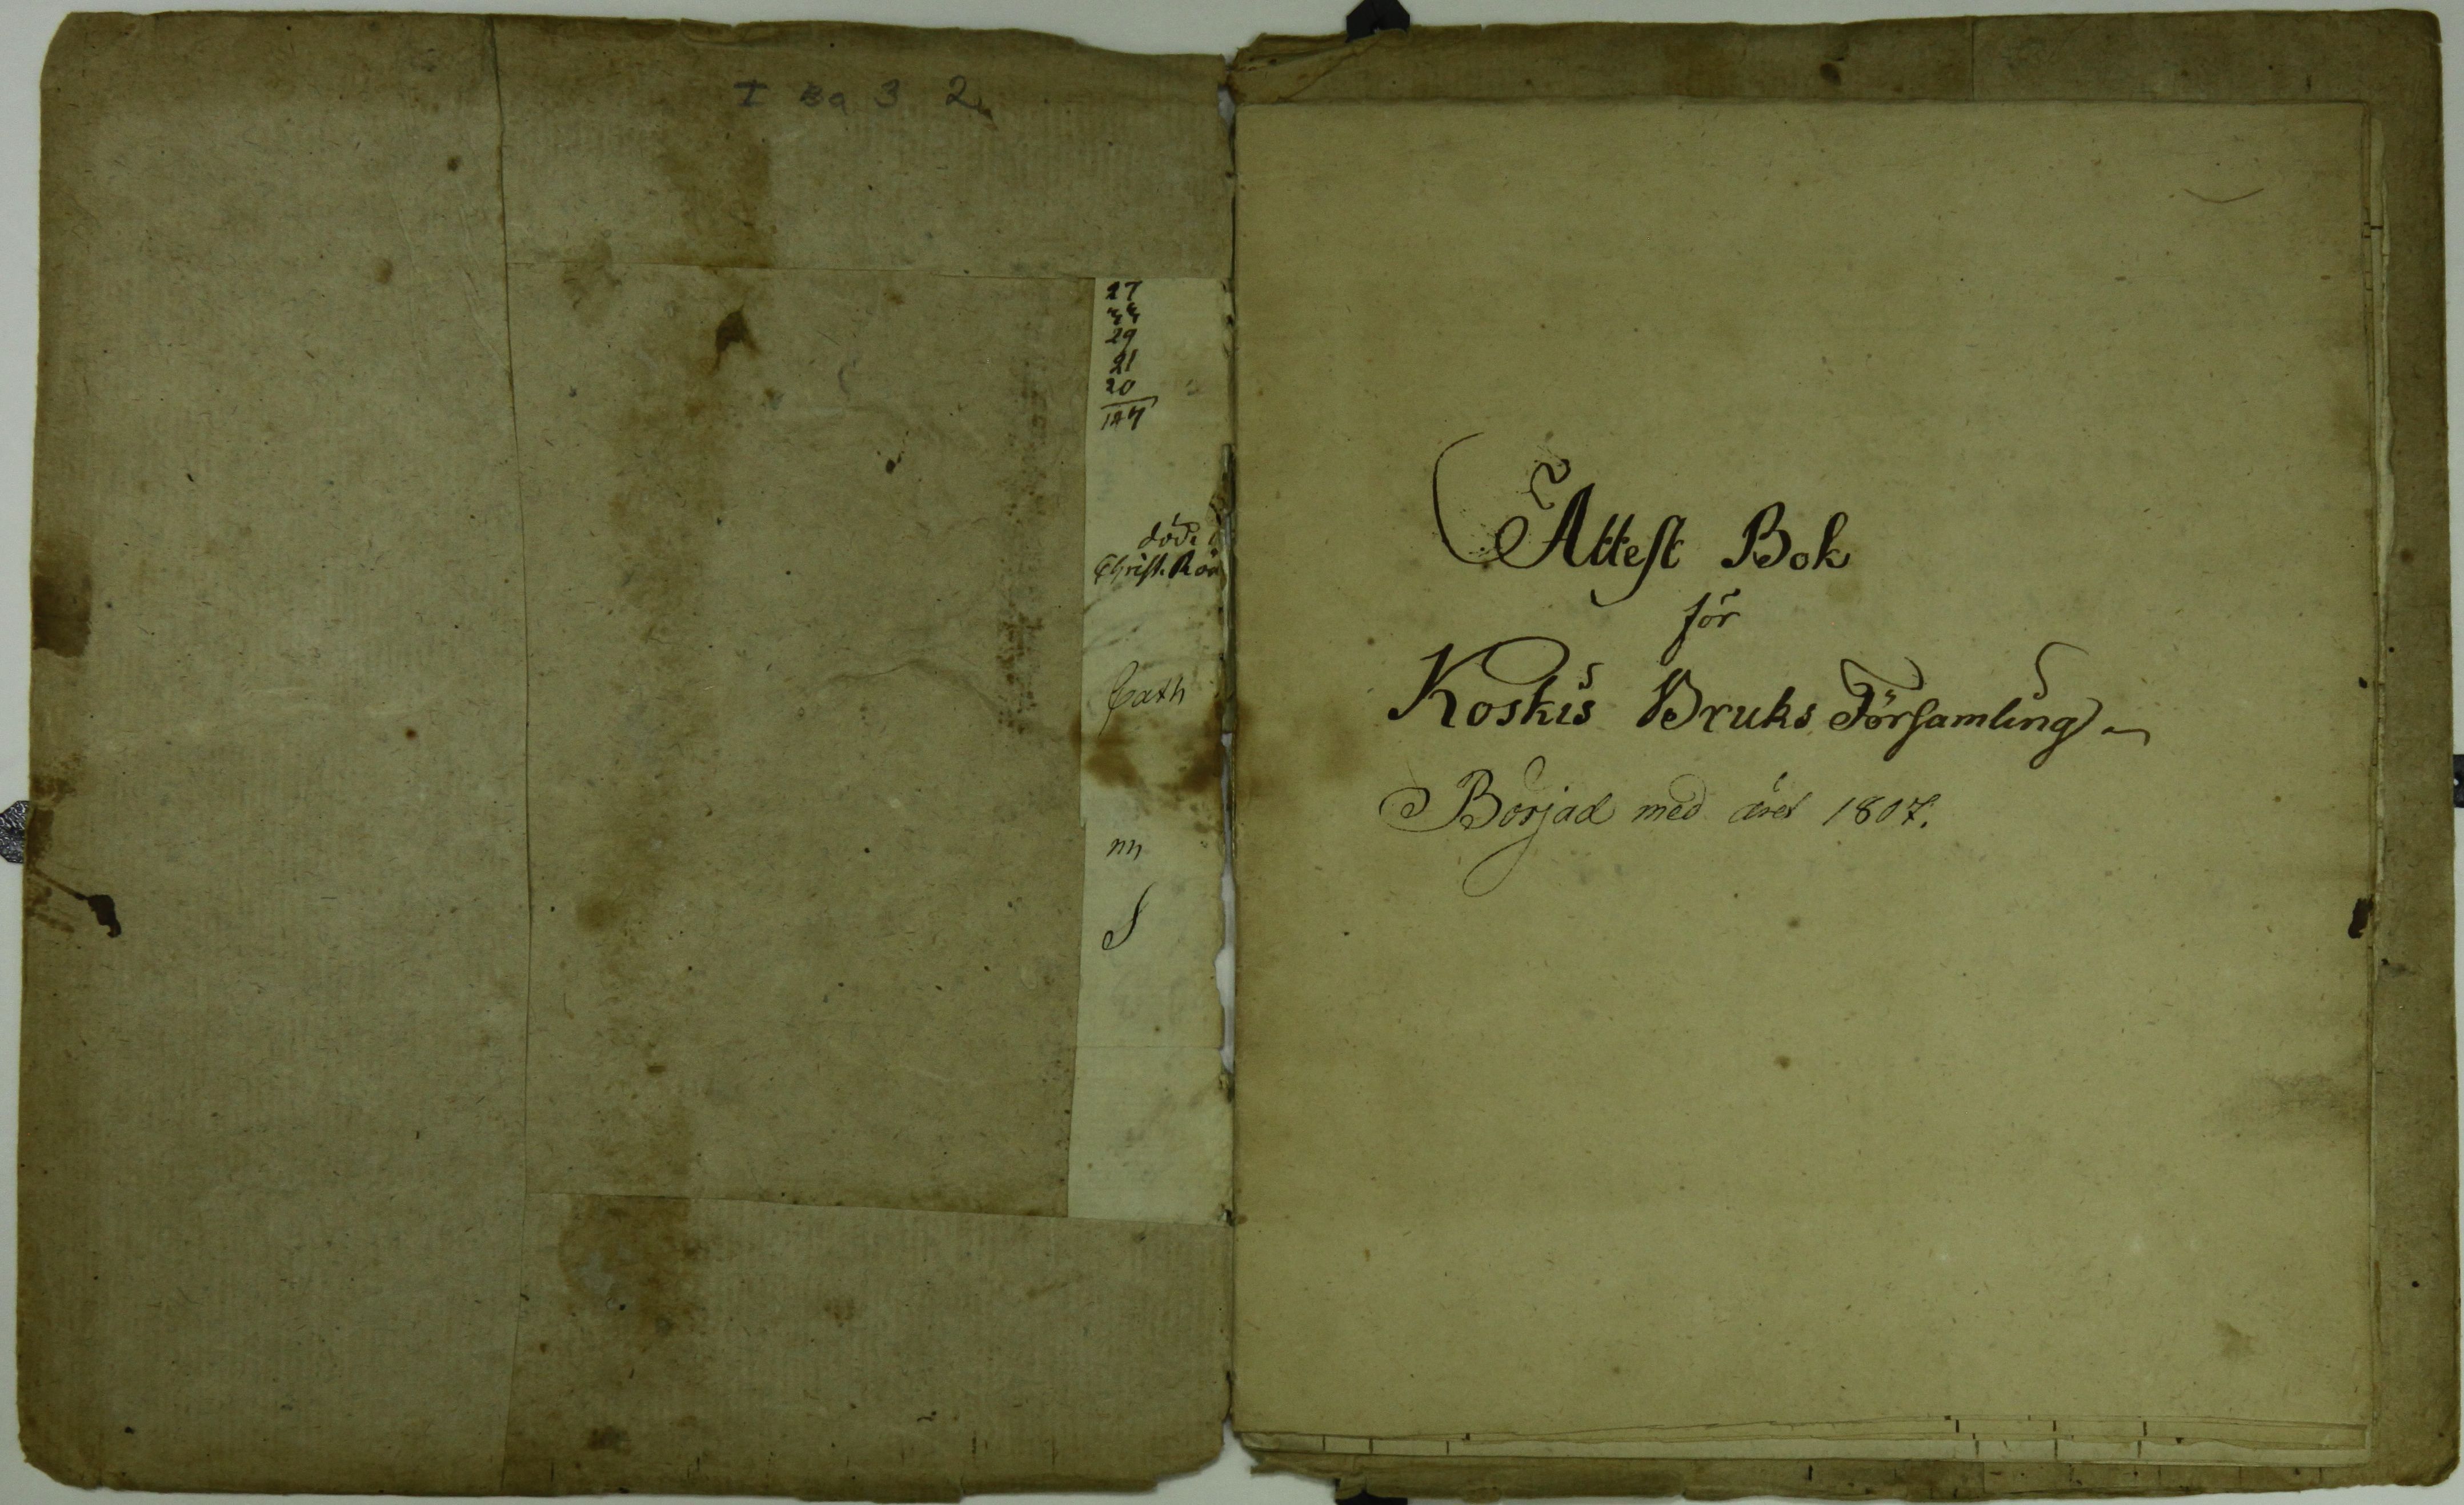 I Ba 3 2
27
29
21
20
döde
Christ. Rö
Cath
nn
S
Attest Bok
för
Koskis Bruks Församling
Börjad med året 1807.